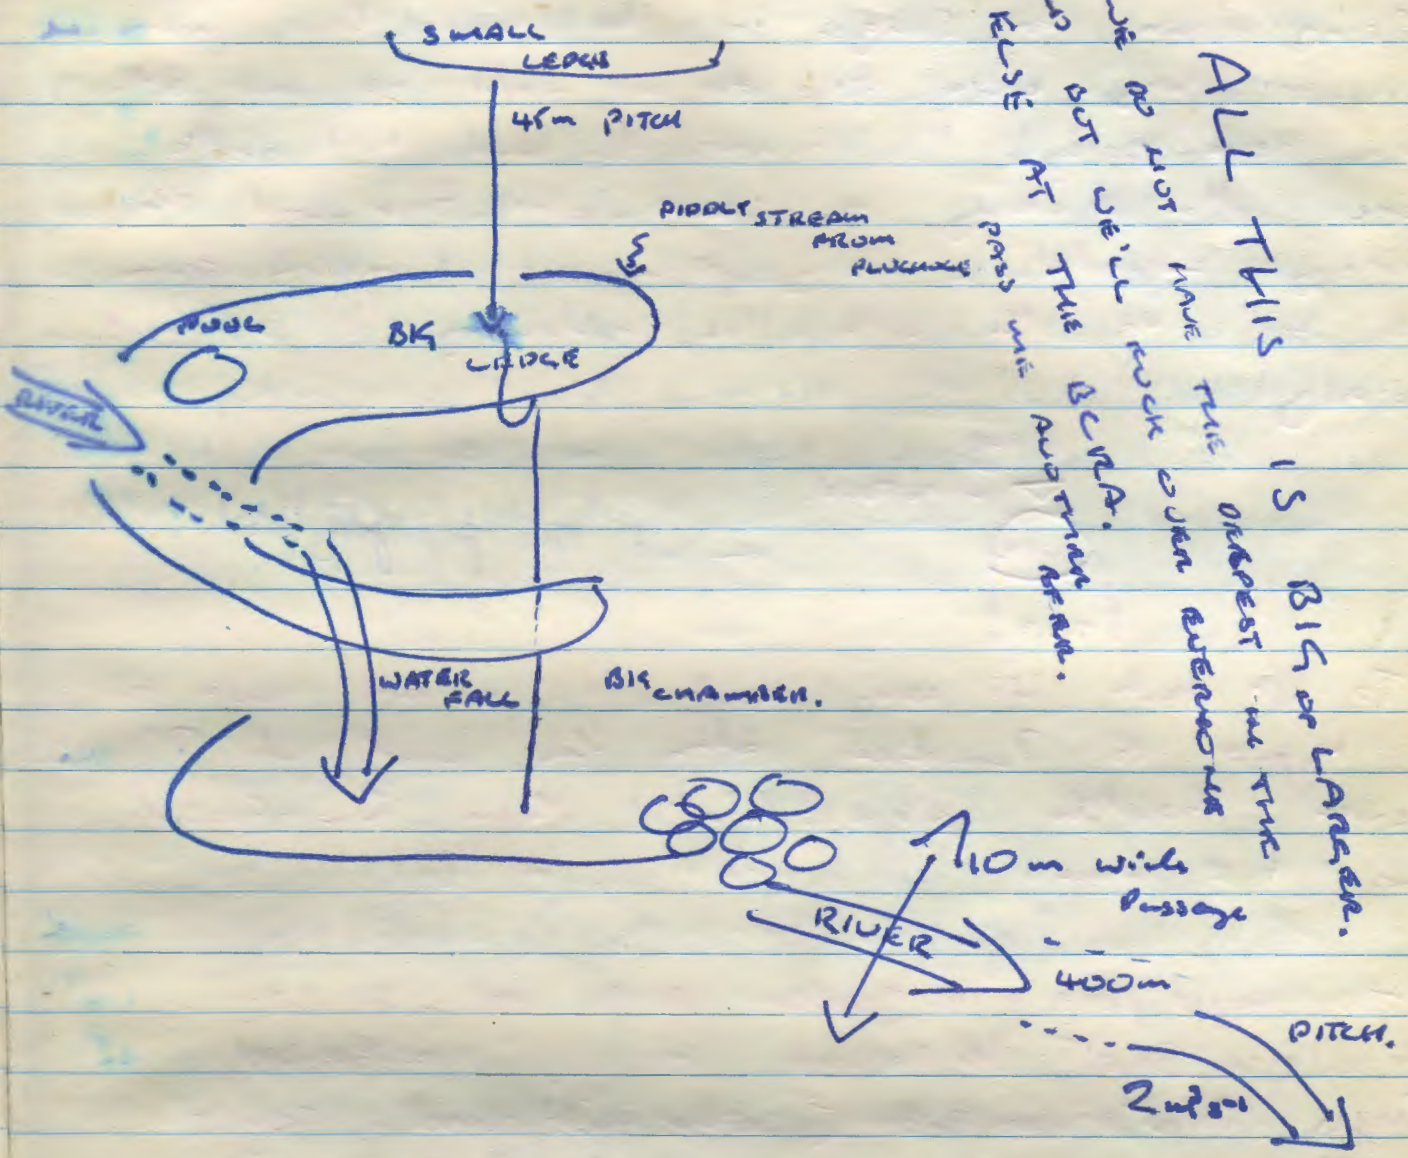 SMALL
LEDGE
45m PITCH
PIDDLY STREAM
FROM
PLUGHOLE
POOL
BIG
LEDGE
RIVER
WATER
FALL
BIG CHAMBER.
10m wide
Passage
RIVER
400m
PITCH.
2m³s⁻¹
ALL THIS IS BIG OR LARGER.
WE DO NOT HAVE THE DEEPEST IN THE
BUT WE'LL FUCK OVER EVERYONE
ELSE AT THE BCRA.
PASS ME ANOTHER BEER.